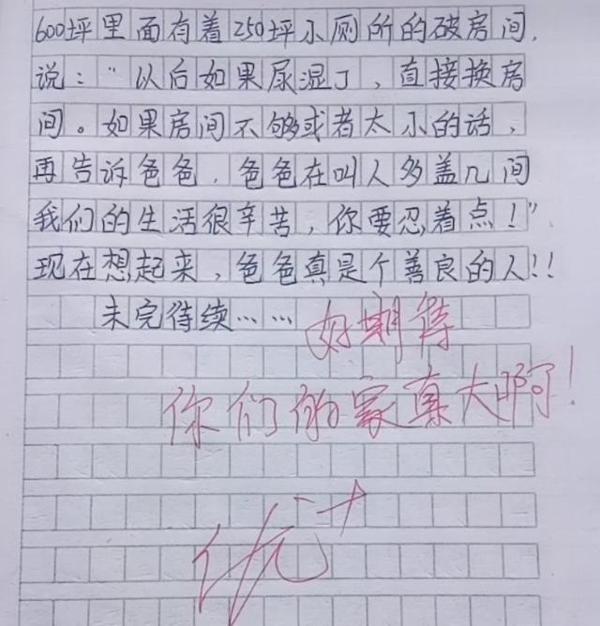 600坪里面有着250坪小厕所的破房间，
说：“以后如果尿湿了，直接换房
间。如果房间不够或者太小的话，
再告诉爸爸，爸爸在叫人多盖几间
我们的生活很辛苦，你要忍着点！”
现在想起来，爸爸真是个善良的人！！
未完待续……
好期待
你们的家真大啊！
优+